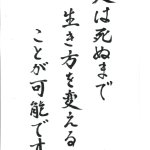 人は死ぬまで
生き方を変える
ことが可能です